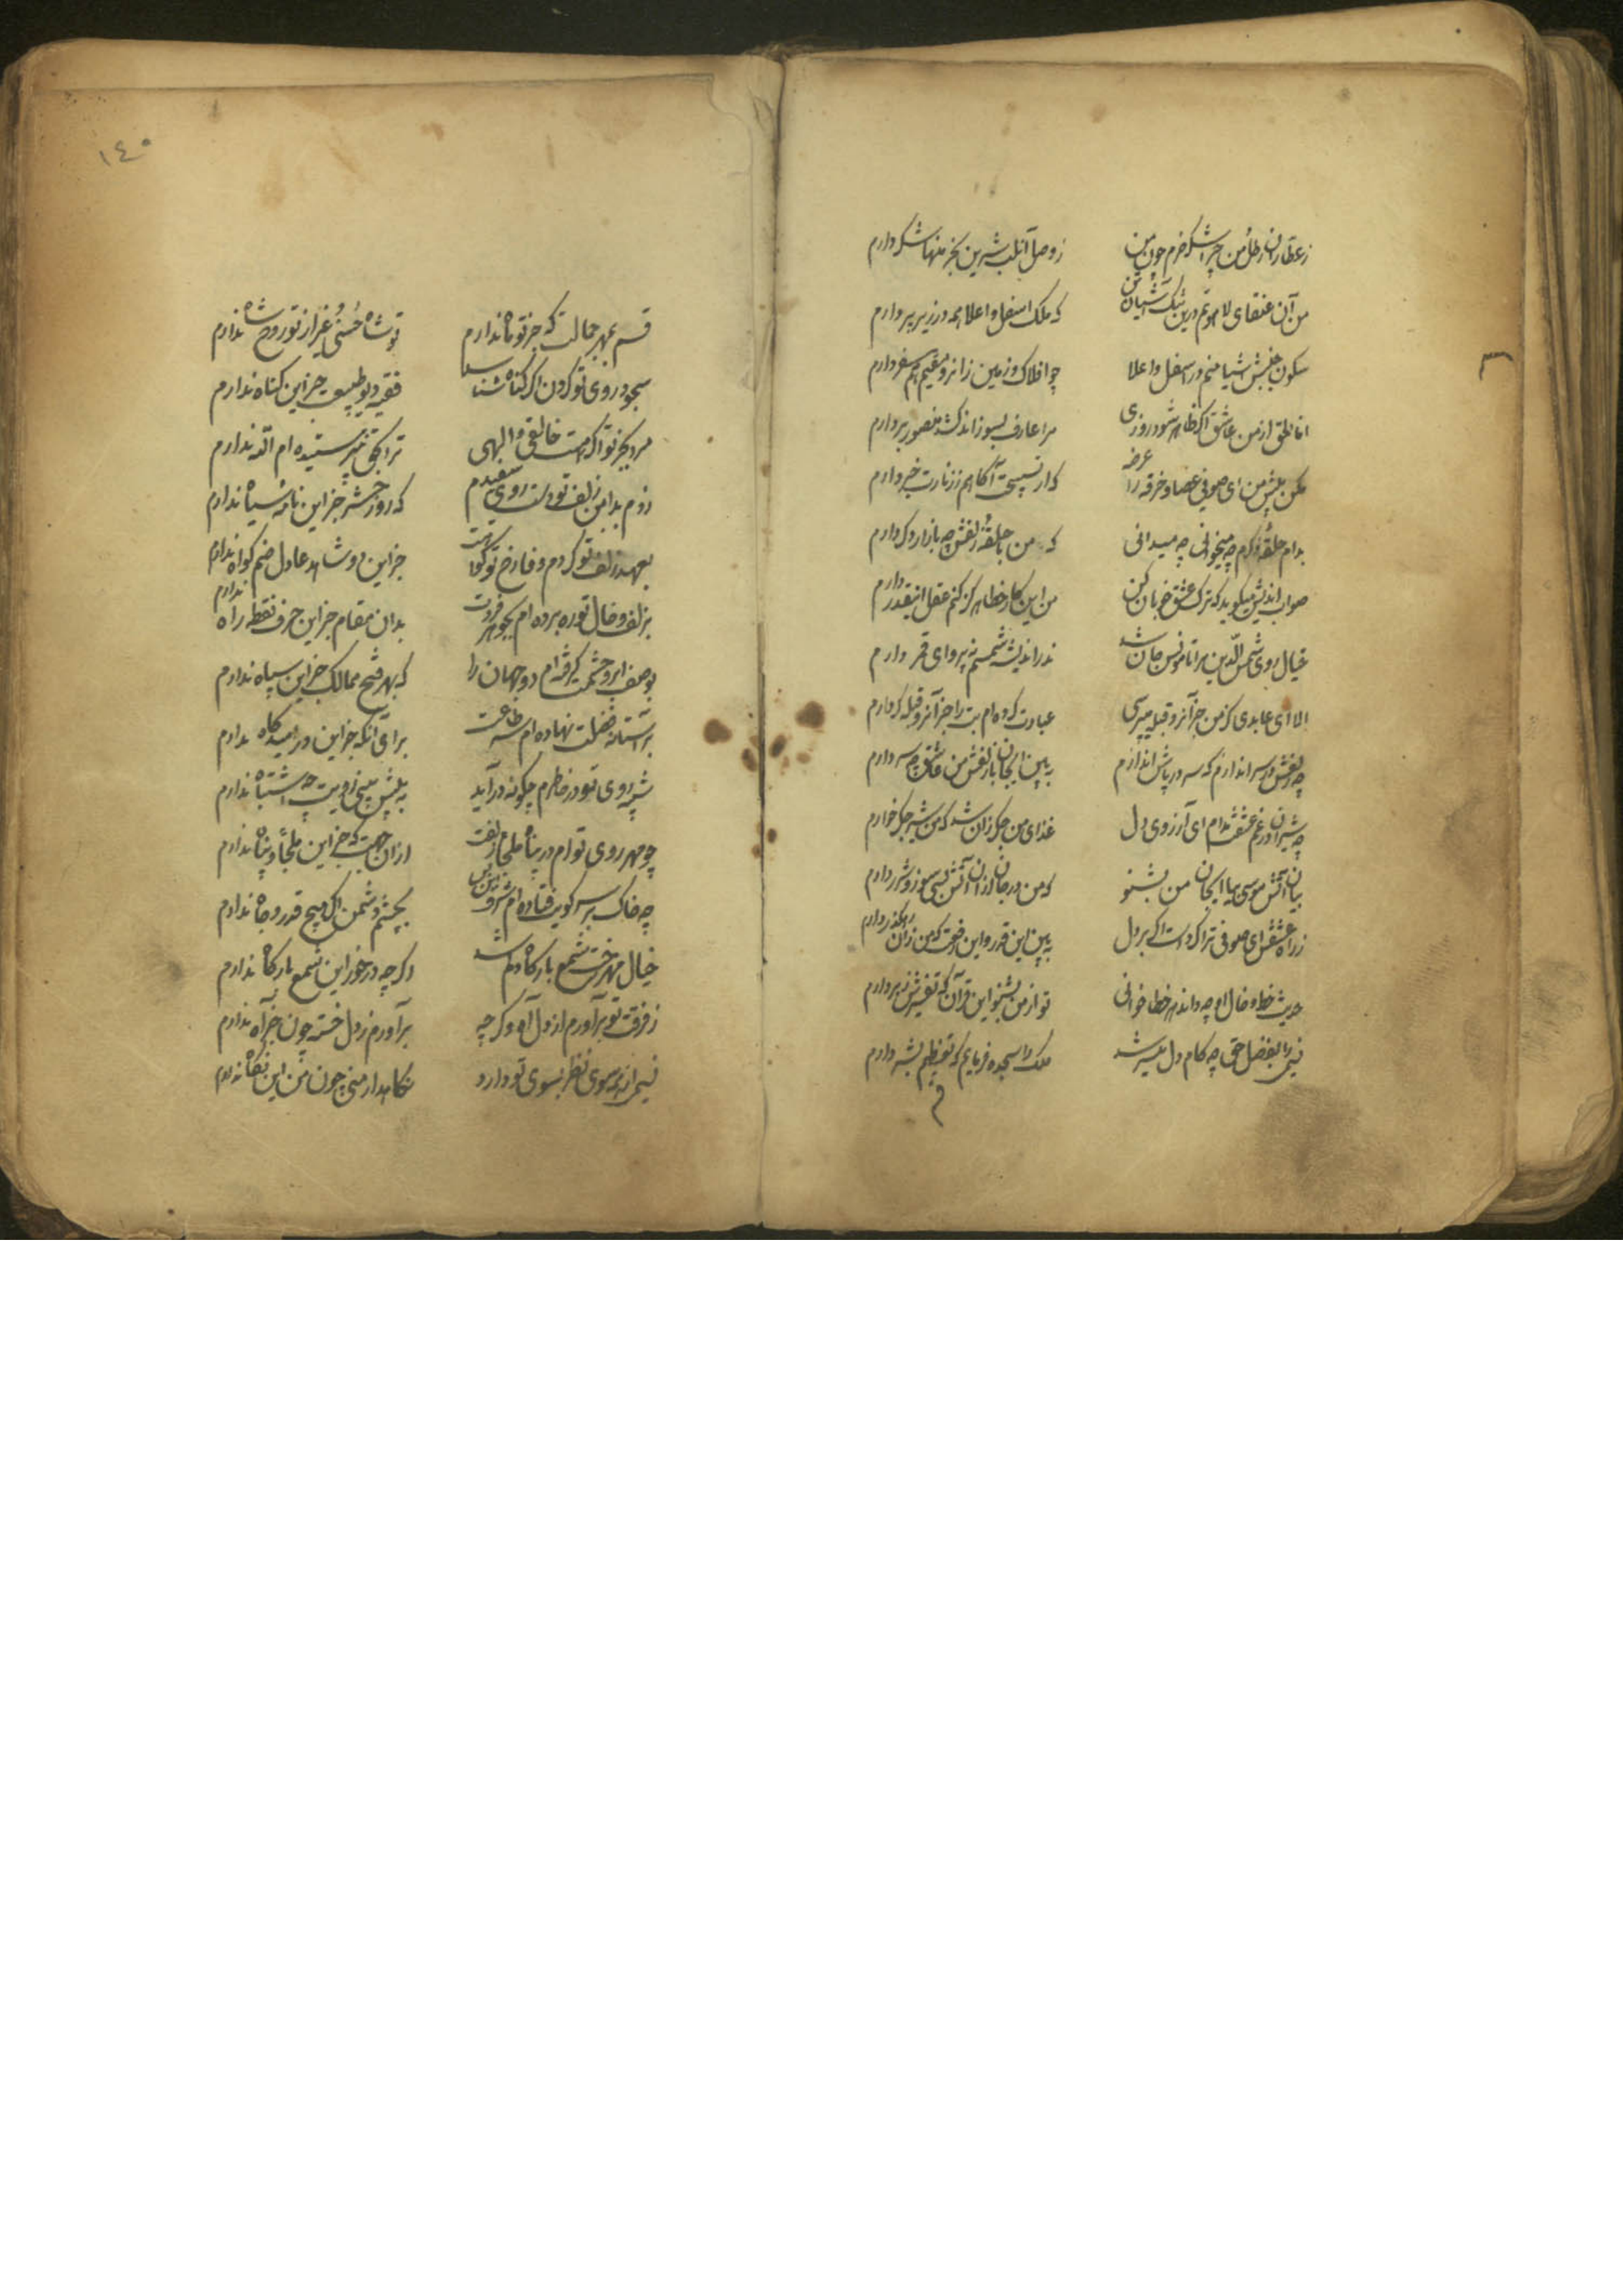 ز عطاران رطل من چرا شکر خرم چون من ز وصل آن لب شیرین بخرمنها شکر دارم
من آن عنقای لاهوتم درین تنک آشیان تن که ملک اسفل و اعلا همه در زیر پر دارم
سکون جنبش اشیا منم در اسفل و اعلا چو افلاک و زمین زانرو مقیمم هم سفر دارم
انا الحق از من عاشق اکر ظاهر شود روزی مرا عارف بسوزاند کشد منصور بردارم
مکن پیش من ای صوفی عصا و خرقه را عرضه که از تسبیحت آکاهم ز زنارت خبر دارم
بدام حلقه ذکرم چه میخوانی چه میدانی که من با حلقه زلفش چه بازار دکر دارم
صواب اندیش میکوید که ترک عشق خوبان کن من این کار خطا هرکز کنم عقل اینقدر دارم
خیال روی شمس الدین مرا تا مونس جان شد نه در اندیشه شمسم نه پروای قمر دارم
الا ای عابدی کز من جز آنرو قبله میپرسی عبادت کرده ام بت را جز آنرو قبله کر دارم
چو زلفش در سر اندازم که سر در پاش اندازم ببین ای جان با زلفش من عاشق چه سر دارم
چو شیران در غم عشقت مدام ای آرزوی دل غذای من جکر زان شد که من شیر جکر خوارم
بیان آتش موسی بیا ای جان من بشنو که من در جان از آن آتش بسی سوز و شرر دارم
ز راه عشقش ای صوفی ترا کردست اکر بر دل ببین این قدر و این رفعت که من زان رهکذر دارم
حدیث خط و خال او چه داند هر خطا خوانی تو از من بشنو این قرآن که تفسیرش ز بر دارم
نسیمی را بفضل حق چو کام دل میسر شد ملک را سجده فرمایم که تعظیم بشر دارم
١٤٥
قسم بمهر جمالت که جز تو ماه ندارم تو شاه حسنی و غیر از تو روح شاه ندارم
سجود روی تو کردن اکر کناه شناسند فقیه دیو طبیعت جز این کناه ندارم
مرو بجز تو اکر هست خالقی و الهی ترا بحق نپرستیده ام اله ندارم
زدم بدامن زلف تو دست روی سفیدم که روز حشر جز این نامه سیاه ندارم
بعهد زلف تو کردم وفا رخ تو کواهست جز این دو شاهد عادل صنم کواه ندارم
بزلف و خال تو ره برده ام بجوهر فردت بدان مقام جز این حرف نقطه راه ندارم
بوصف ابرو و چشمت کرفته ام دو جهان را که بهر فتح ممالک جز این سپاه ندارم
بر آستانه فضلت نهاده ام سر طاعت برای آنکه جز این در امیدکاه ندارم
شب چه روی تو در خاطرم چکونه درآید
چو مهر روی تو ام در پناه ملجأ زلفت از آن جهت که جز این ملجأ و پناه ندارم
چه خاک بر سر کویت فتاده ام بچشم دشمن اکر هیچ قدر و جاه ندارم
خیال مهر رخت شمع بارکاه دلم شد وکر چه در خور این شمع بارکاه ندارم
ز فرقت تو برآورم از دل آه وکر چه برآورم ز دل خسته چون جز آه ندارم
نسیمی از همه سوی نظر بسوی تو دارد نکاهدار منی چون من این نکاه ندارم